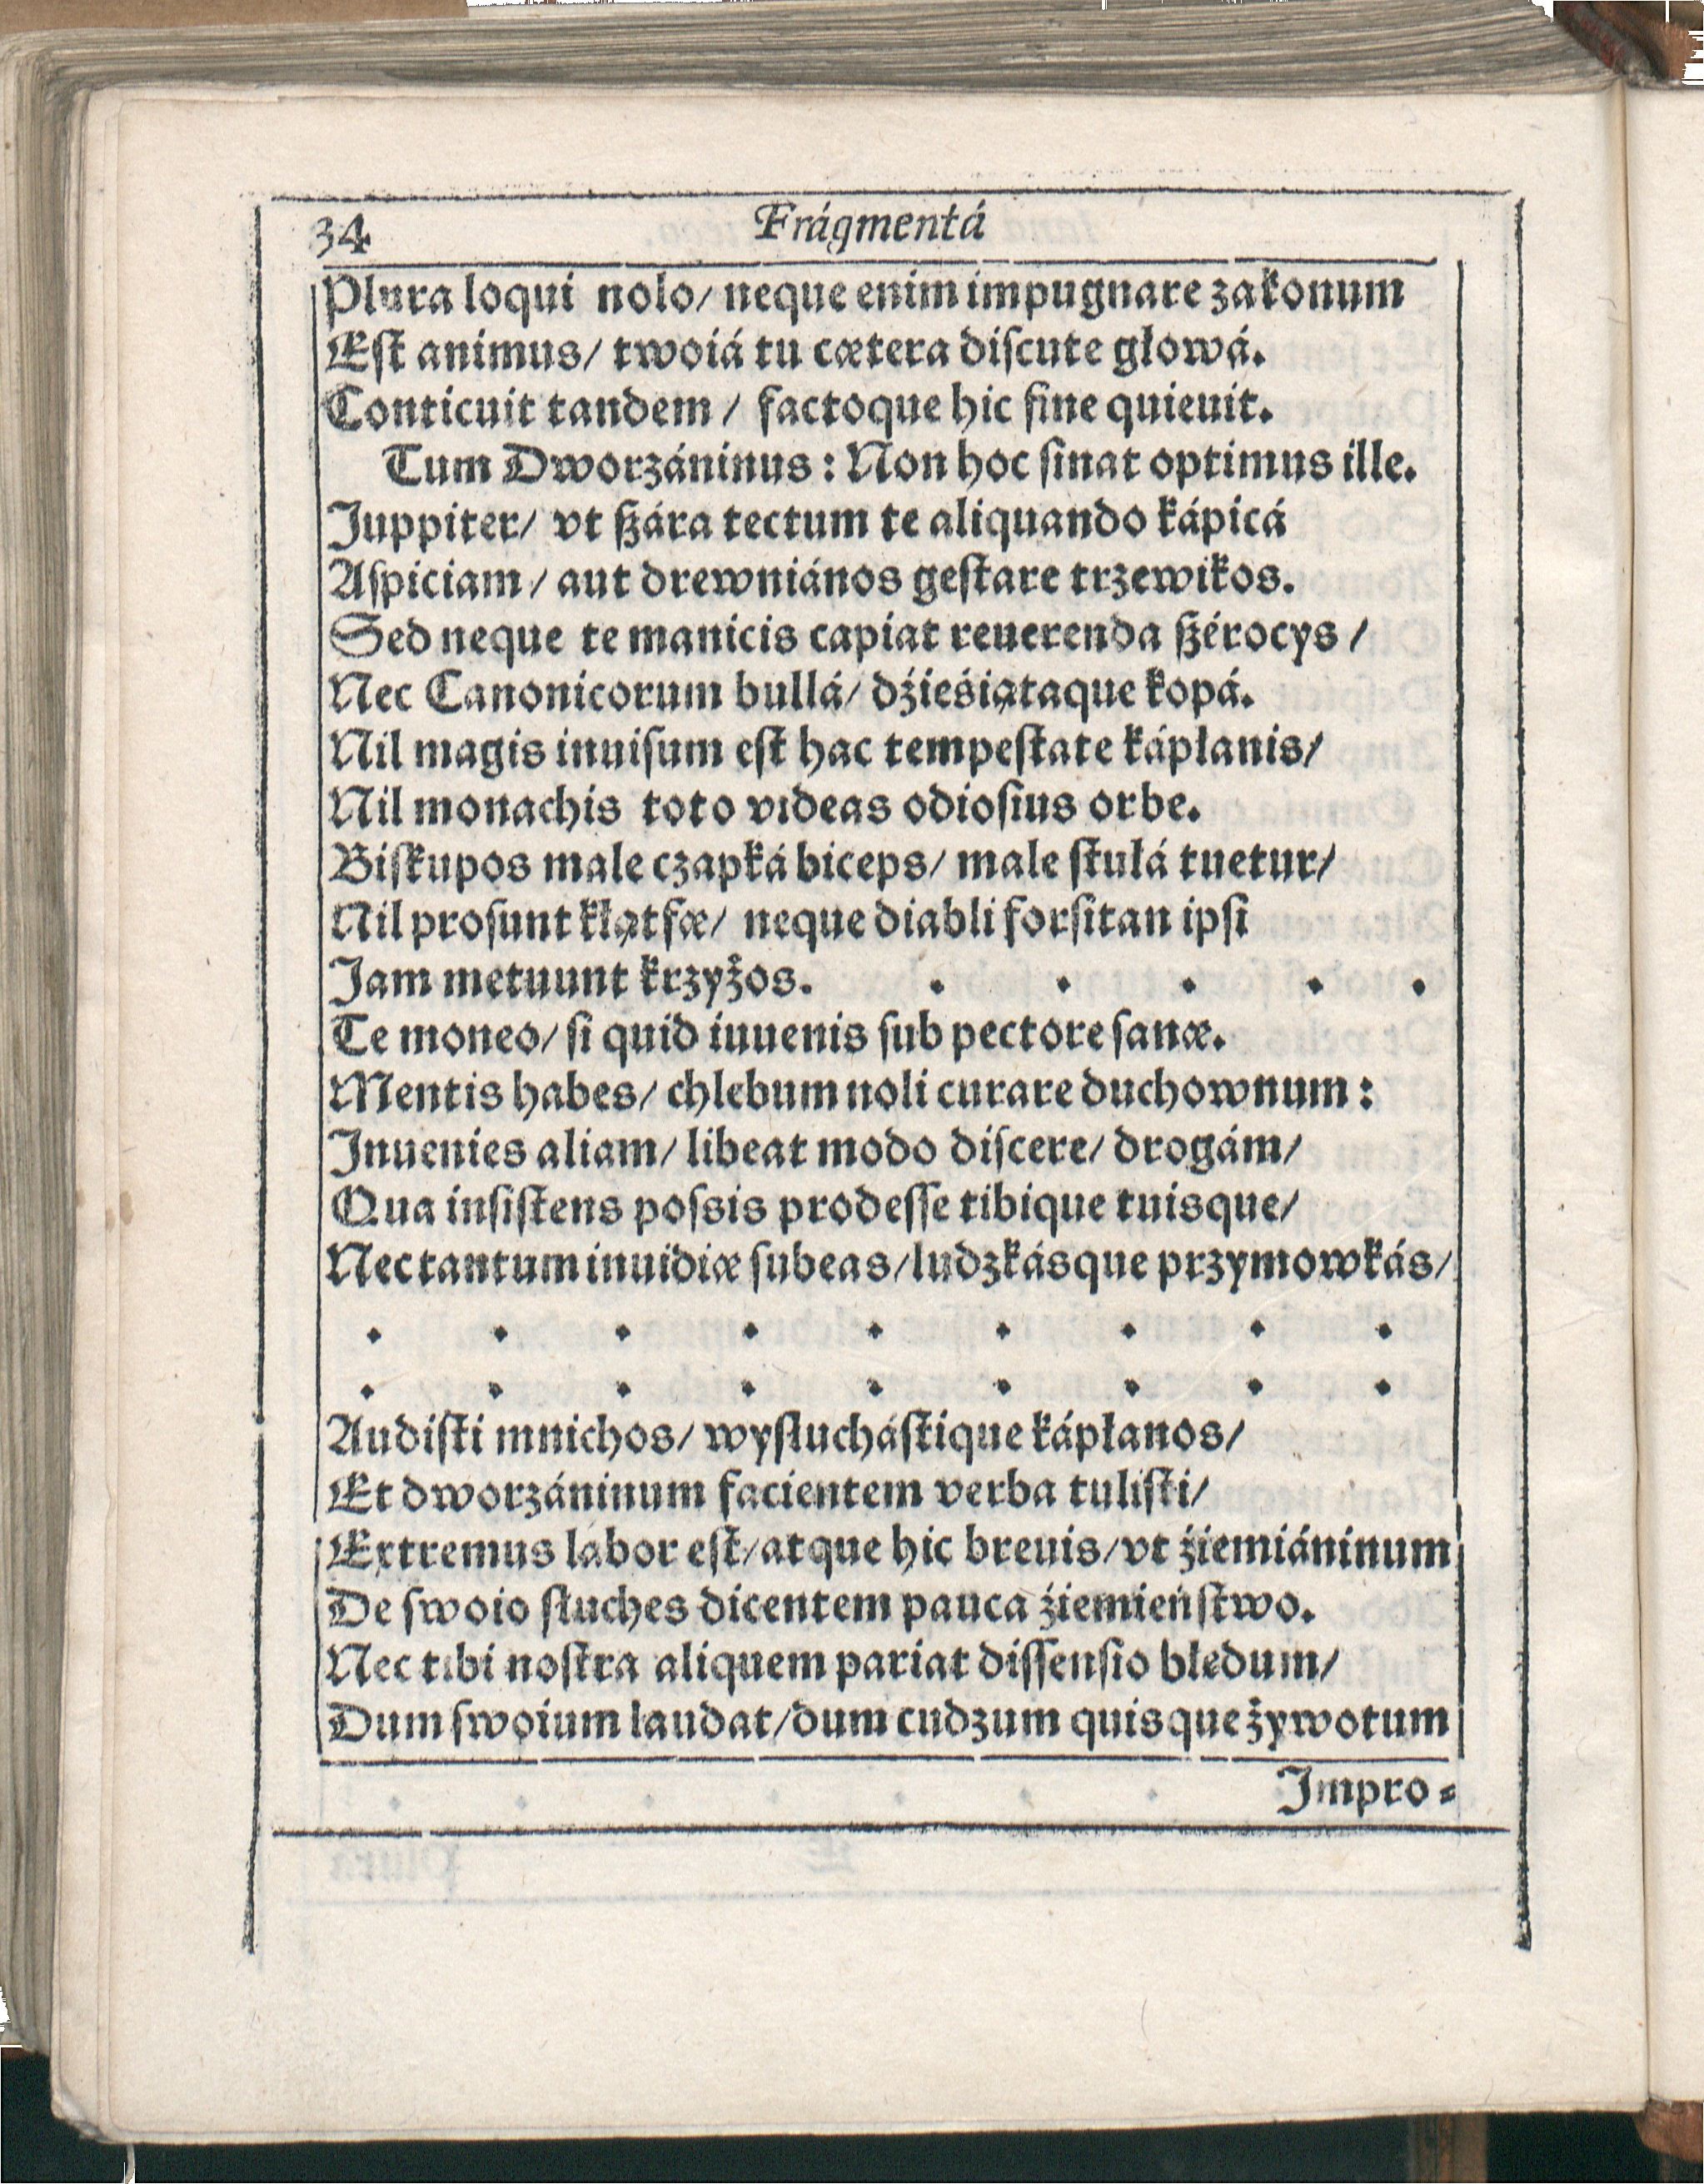 34 Frágmentá
Plura loqui nolo/ neque enim impugnare zakonum
Eſt animus/ twoiá tu cætera diſcute głowá.
Conticuit tandem / factoque hic fine quieuit.
Tum Dworzáninus: Non hoc ſinat optimus ille.
Juppiter/ vt ſzára tectum te aliquando kápicá
Aſpiciam/ aut drewniános geſtare trzewikos.
Sed neque te manicis capiat reuerenda ſzérocys /
Nec Canonicorum bullá/ dźieśiątaque kopá.
Nil magis inuiſum eſt hac tempeſtate kápłanis/
Nil monachis toto videas odioſius orbe.
Biſkupos male czapká biceps/ male ſtułá tuetur/
Nil proſunt kłątfæ/ neque diabli forſitan ipſi
Jam metuunt krzyżos. . . . . .
Te moneo/ ſi quid iuuenis ſub pectore ſanæ.
Mentis habes/ chlebum noli curare duchownum:
Inuenies aliam/ libeat modo diſcere/ drogám/
Qua inſiſtens poſsis prodeſſe tibique tuisque/
Nec tantum inuidiæ ſubeas/ludzkásque przymowkás/
. . . . . . . . .
. . . . . . . . .
Audiſti mnichos/ wyſłucháſtique kápłanos/
Et dworzáninum facientem verba tuliſti/
Extremus labor eſt/atque hic breuis/vt źiemiáninum
De ſwoio ſłuches dicentem pauca źiemieńſtwo.
Nec tibi noſtra aliquem pariat diſſenſio błedum/
Dum ſwoium laudat/dum cudzum quisque żywotum
Impro⸗